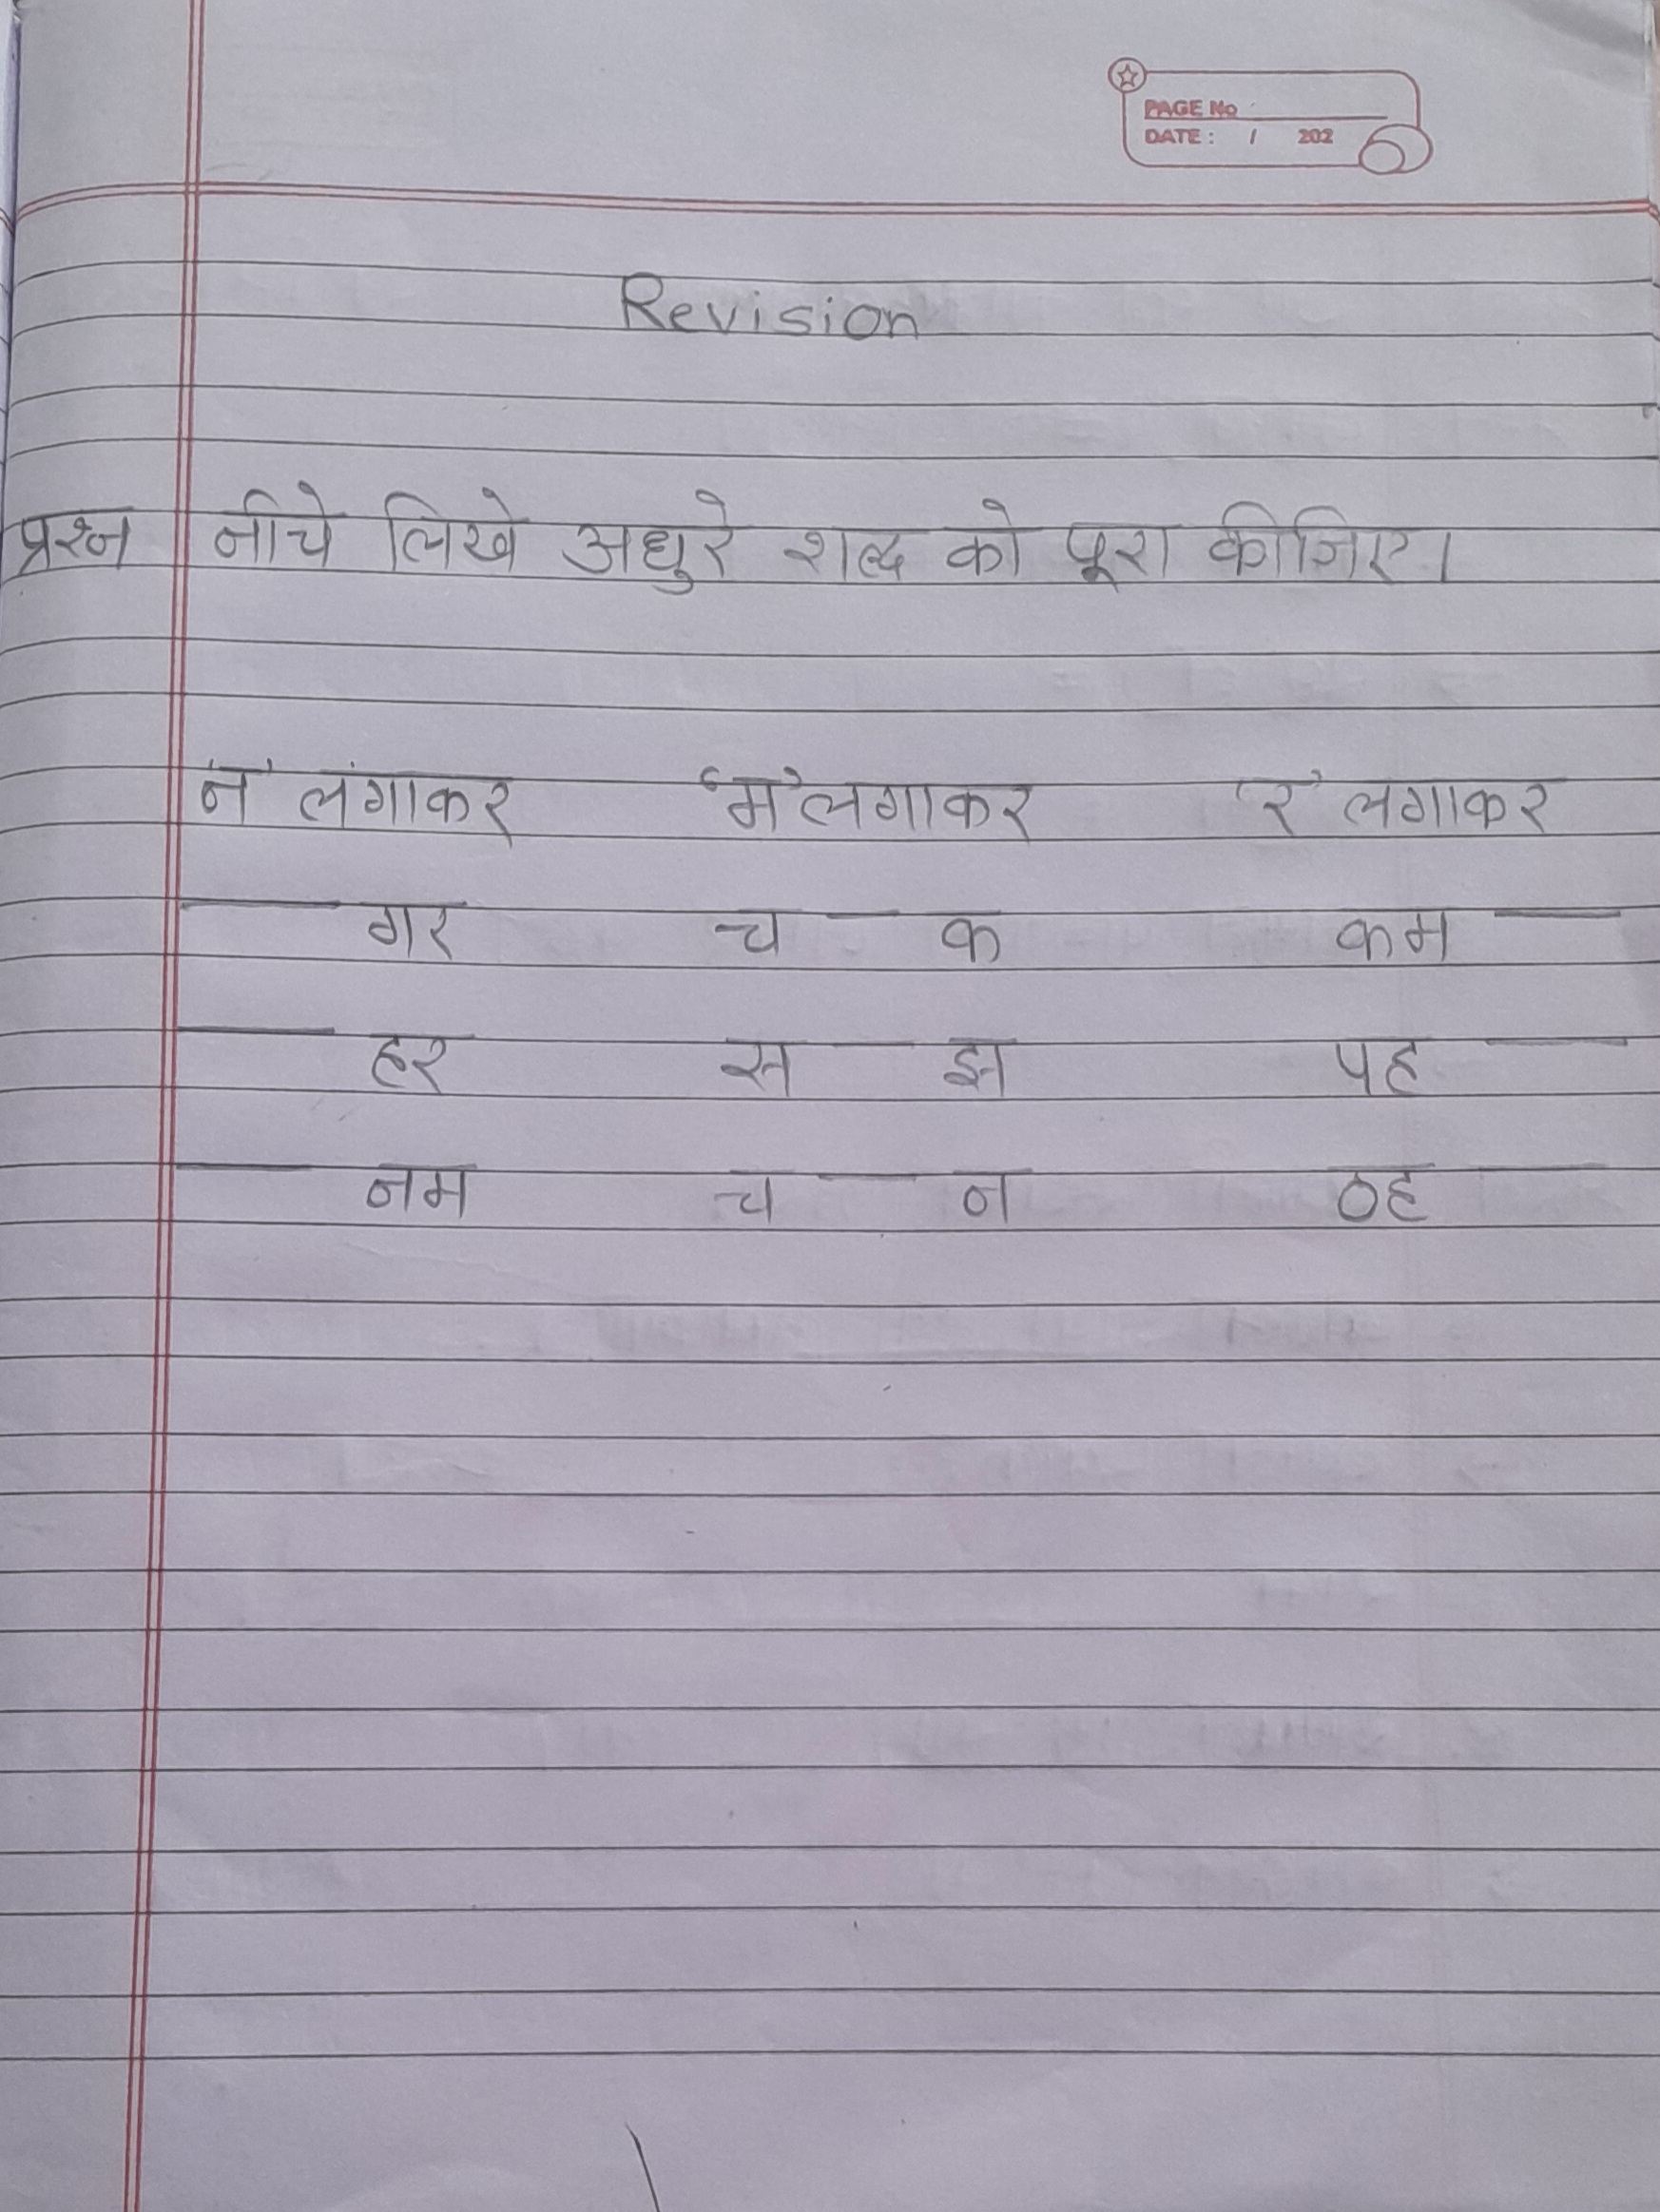 PAGE No
DATE : / 202
Revision
प्रश्न नीचे लिखे अधुरे शब्द को पूरा कीजिए।
'न' लंगाकर 'म' लगाकर 'र' लगाकर
— गर च — क कम —
— हर स — झ पह —
— नम च — न ठह —